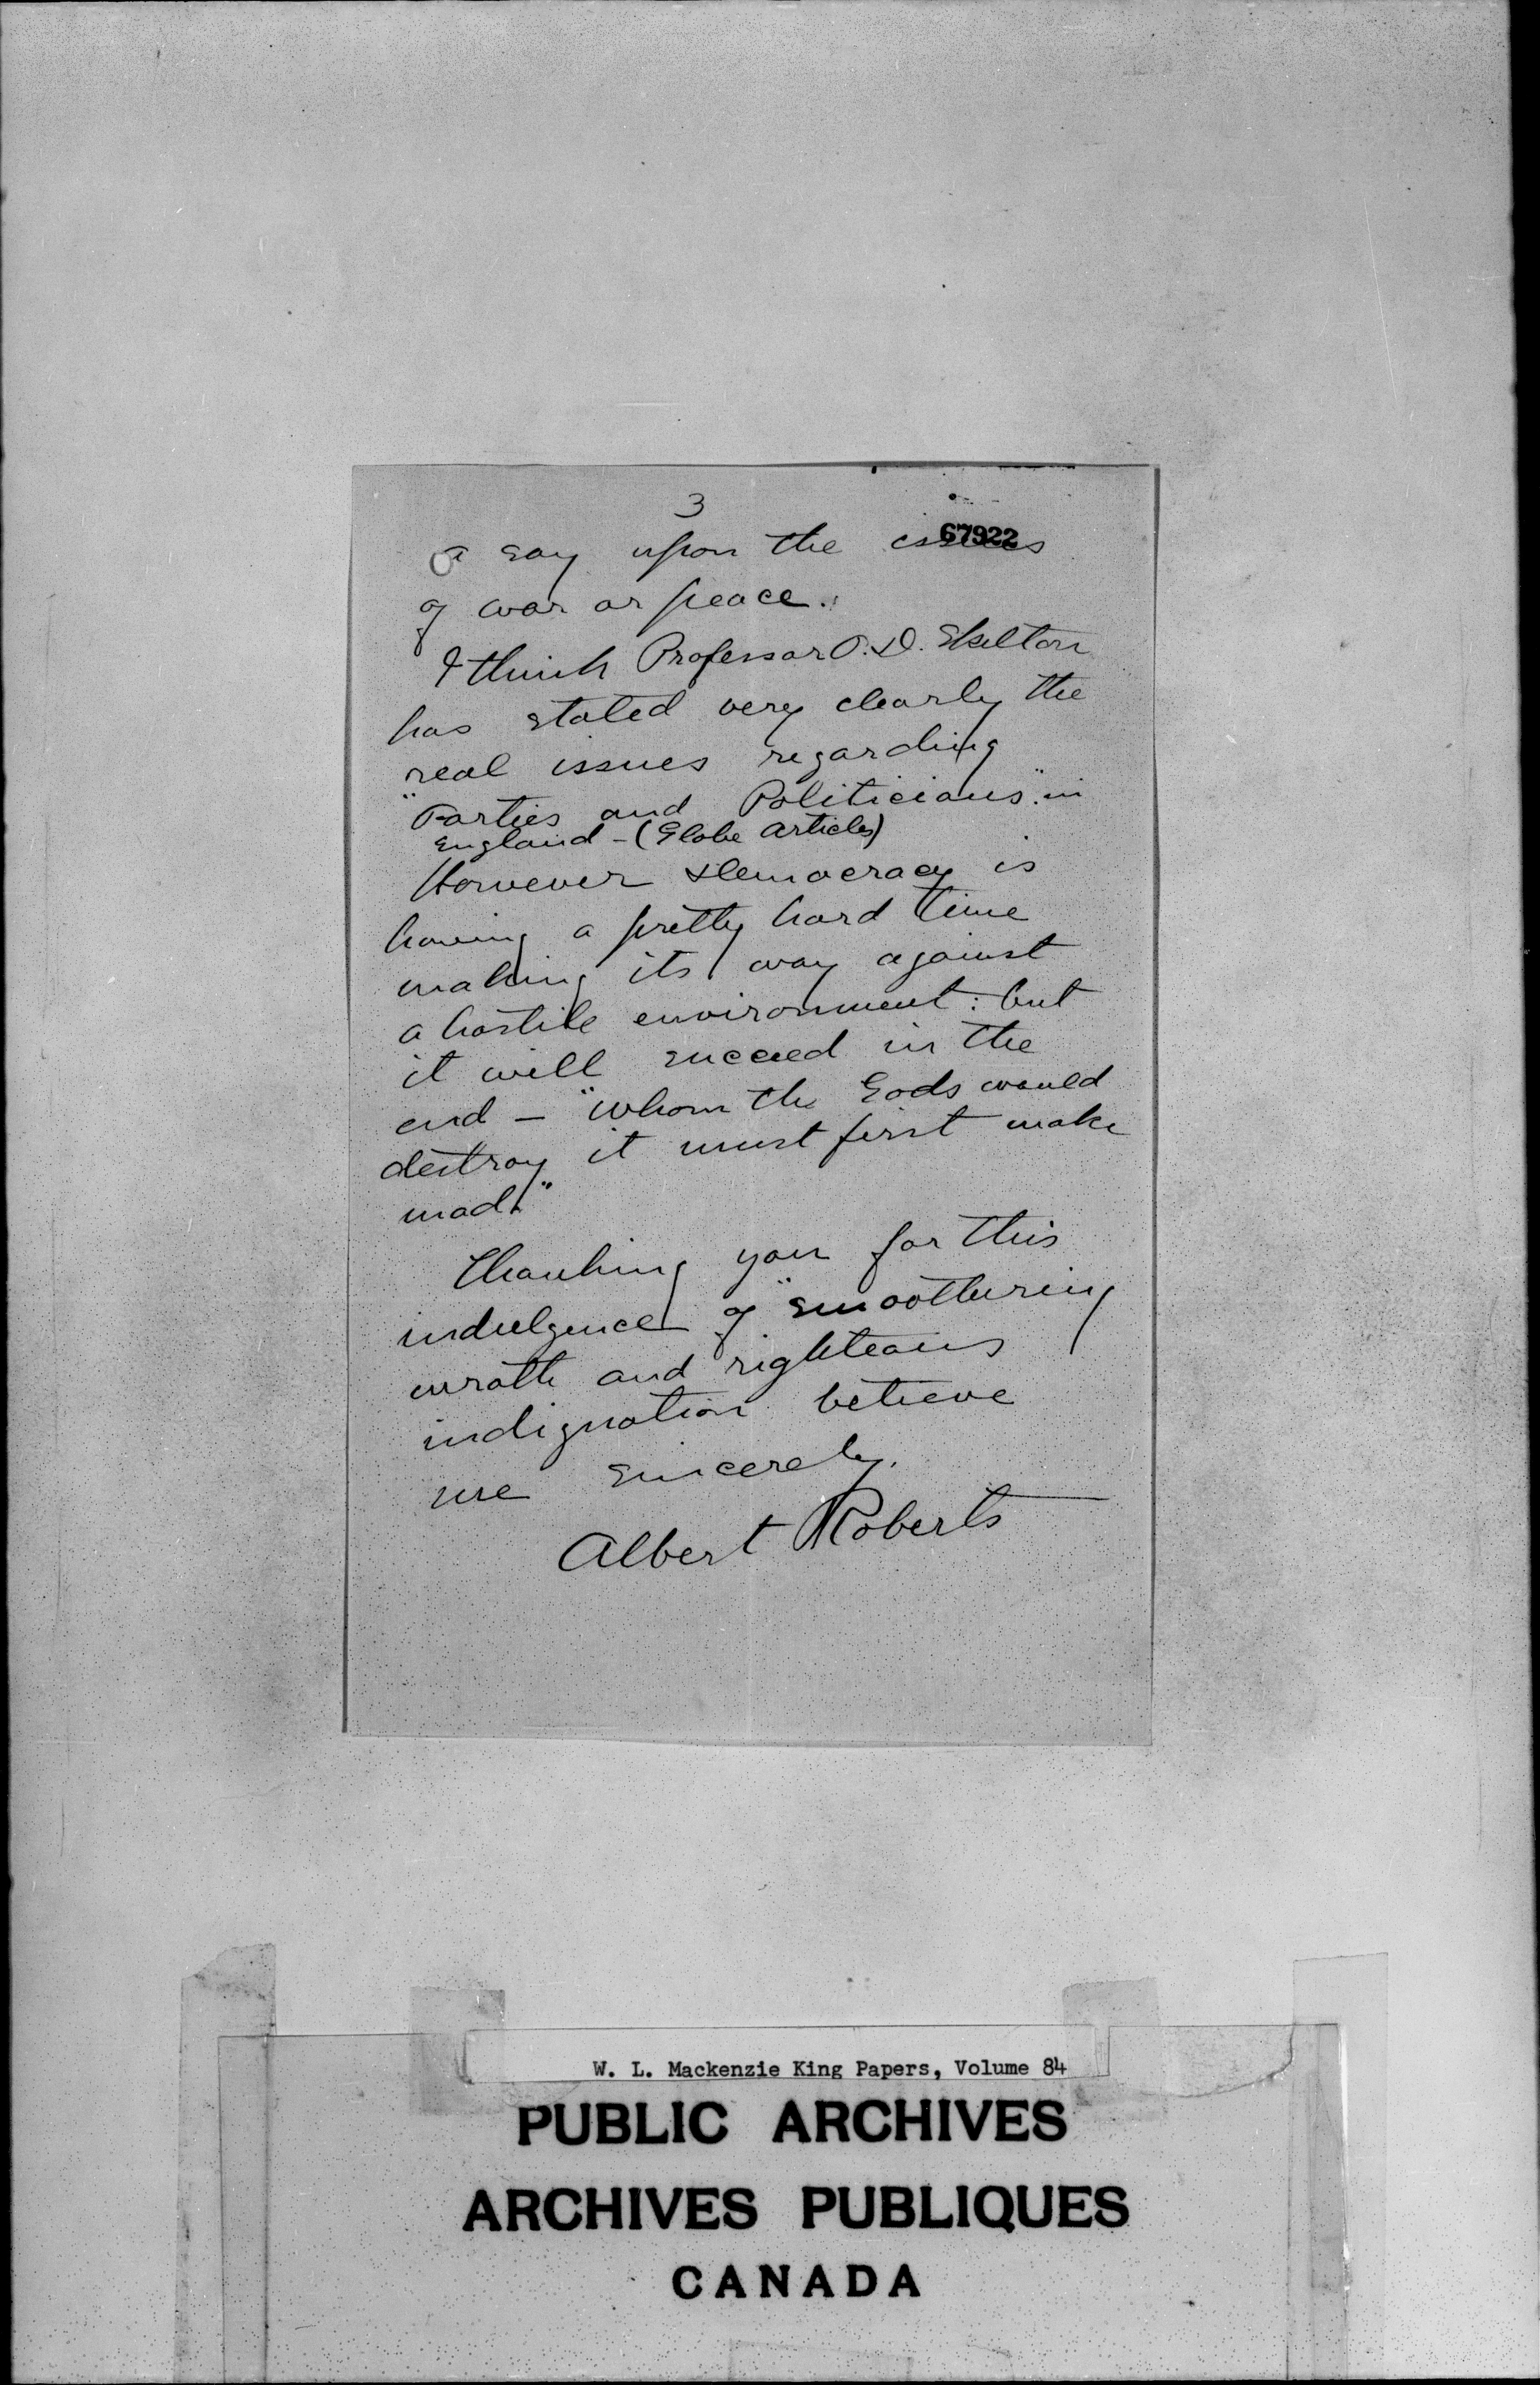 3
67922
a say upon the issues
of war or peace.
I think Professor O.D. Skelton
has stated very clearly the
real issues regarding
"Parties and Politicians" in
England - (Globe Articles)
However Democracy is
having a pretty hard time
making its way against
a hostile environment: but
it will succeed in the
end - "Whom the Gods would
destroy it must first make
mad."
Thanking you for this
indulgence of "smoothering
wrath and righteous
indignation believe
me sincerely.
Albert Roberts
W. L. Mackenzie King Papers, Volume 84
PUBLIC ARCHIVES
ARCHIVES PUBLIQUES
CANADA